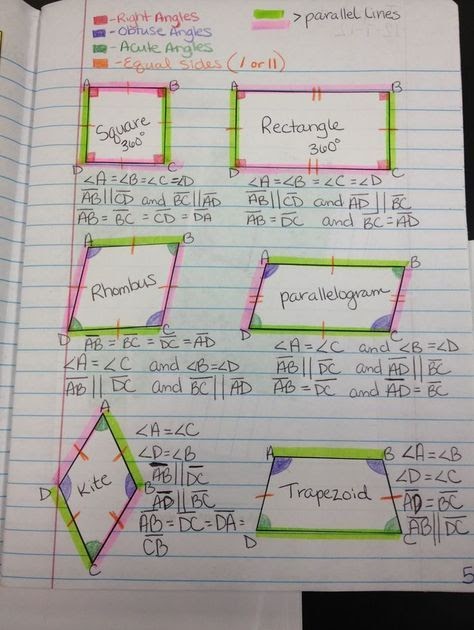 - Right Angles
- Obtuse Angles
- Acute Angles
- Equal sides (I or II)
> parallel Lines
A B
Square
360°
D C
∠A = ∠B = ∠C = ∠D
AB || CD and BC || AD
AB = BC = CD = DA
A B
Rectangle
360°
D C
∠A = ∠B = ∠C = ∠D
AB || CD and AD || BC
AB = DC and BC = AD
A B
Rhombus
D C
AB = BC = DC = AD
∠A = ∠C and ∠B = ∠D
AB || DC and BC || AD
A B
parallelogram
D C
∠A = ∠C and ∠B = ∠D
AB || DC and AD || BC
AB = DC and AD = BC
A
D Kite B
C
∠A = ∠C
∠D = ∠B
AB || DC
AD || BC
AB = DC = DA =
CB
A B
Trapezoid
D C
∠A = ∠B
∠D = ∠C
AD = BC
AB || DC
5